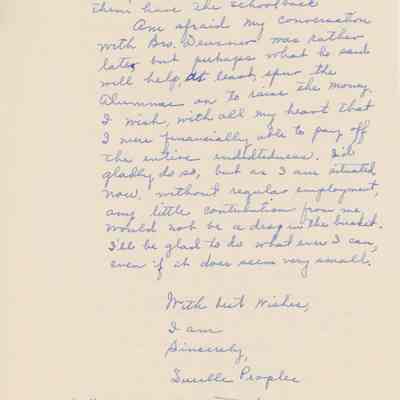 them have the school back
Am afraid my conversation
with Bro. was rather
late, but perhaps what he said
will help, at least, spur the
Alumnae on to raise the money.
I wish, with all my heart that
I were financially able to pay off
the entire indebtedness. I'd
gladly do so, but as I am situated
now, without regular employment,
any little contribution from me,
would not be a drop in the bucket.
I'll be glad to do what ever I can,
even if it does seem very small.
With best wishes,
I am
Sincerely,
Lucille Peoples